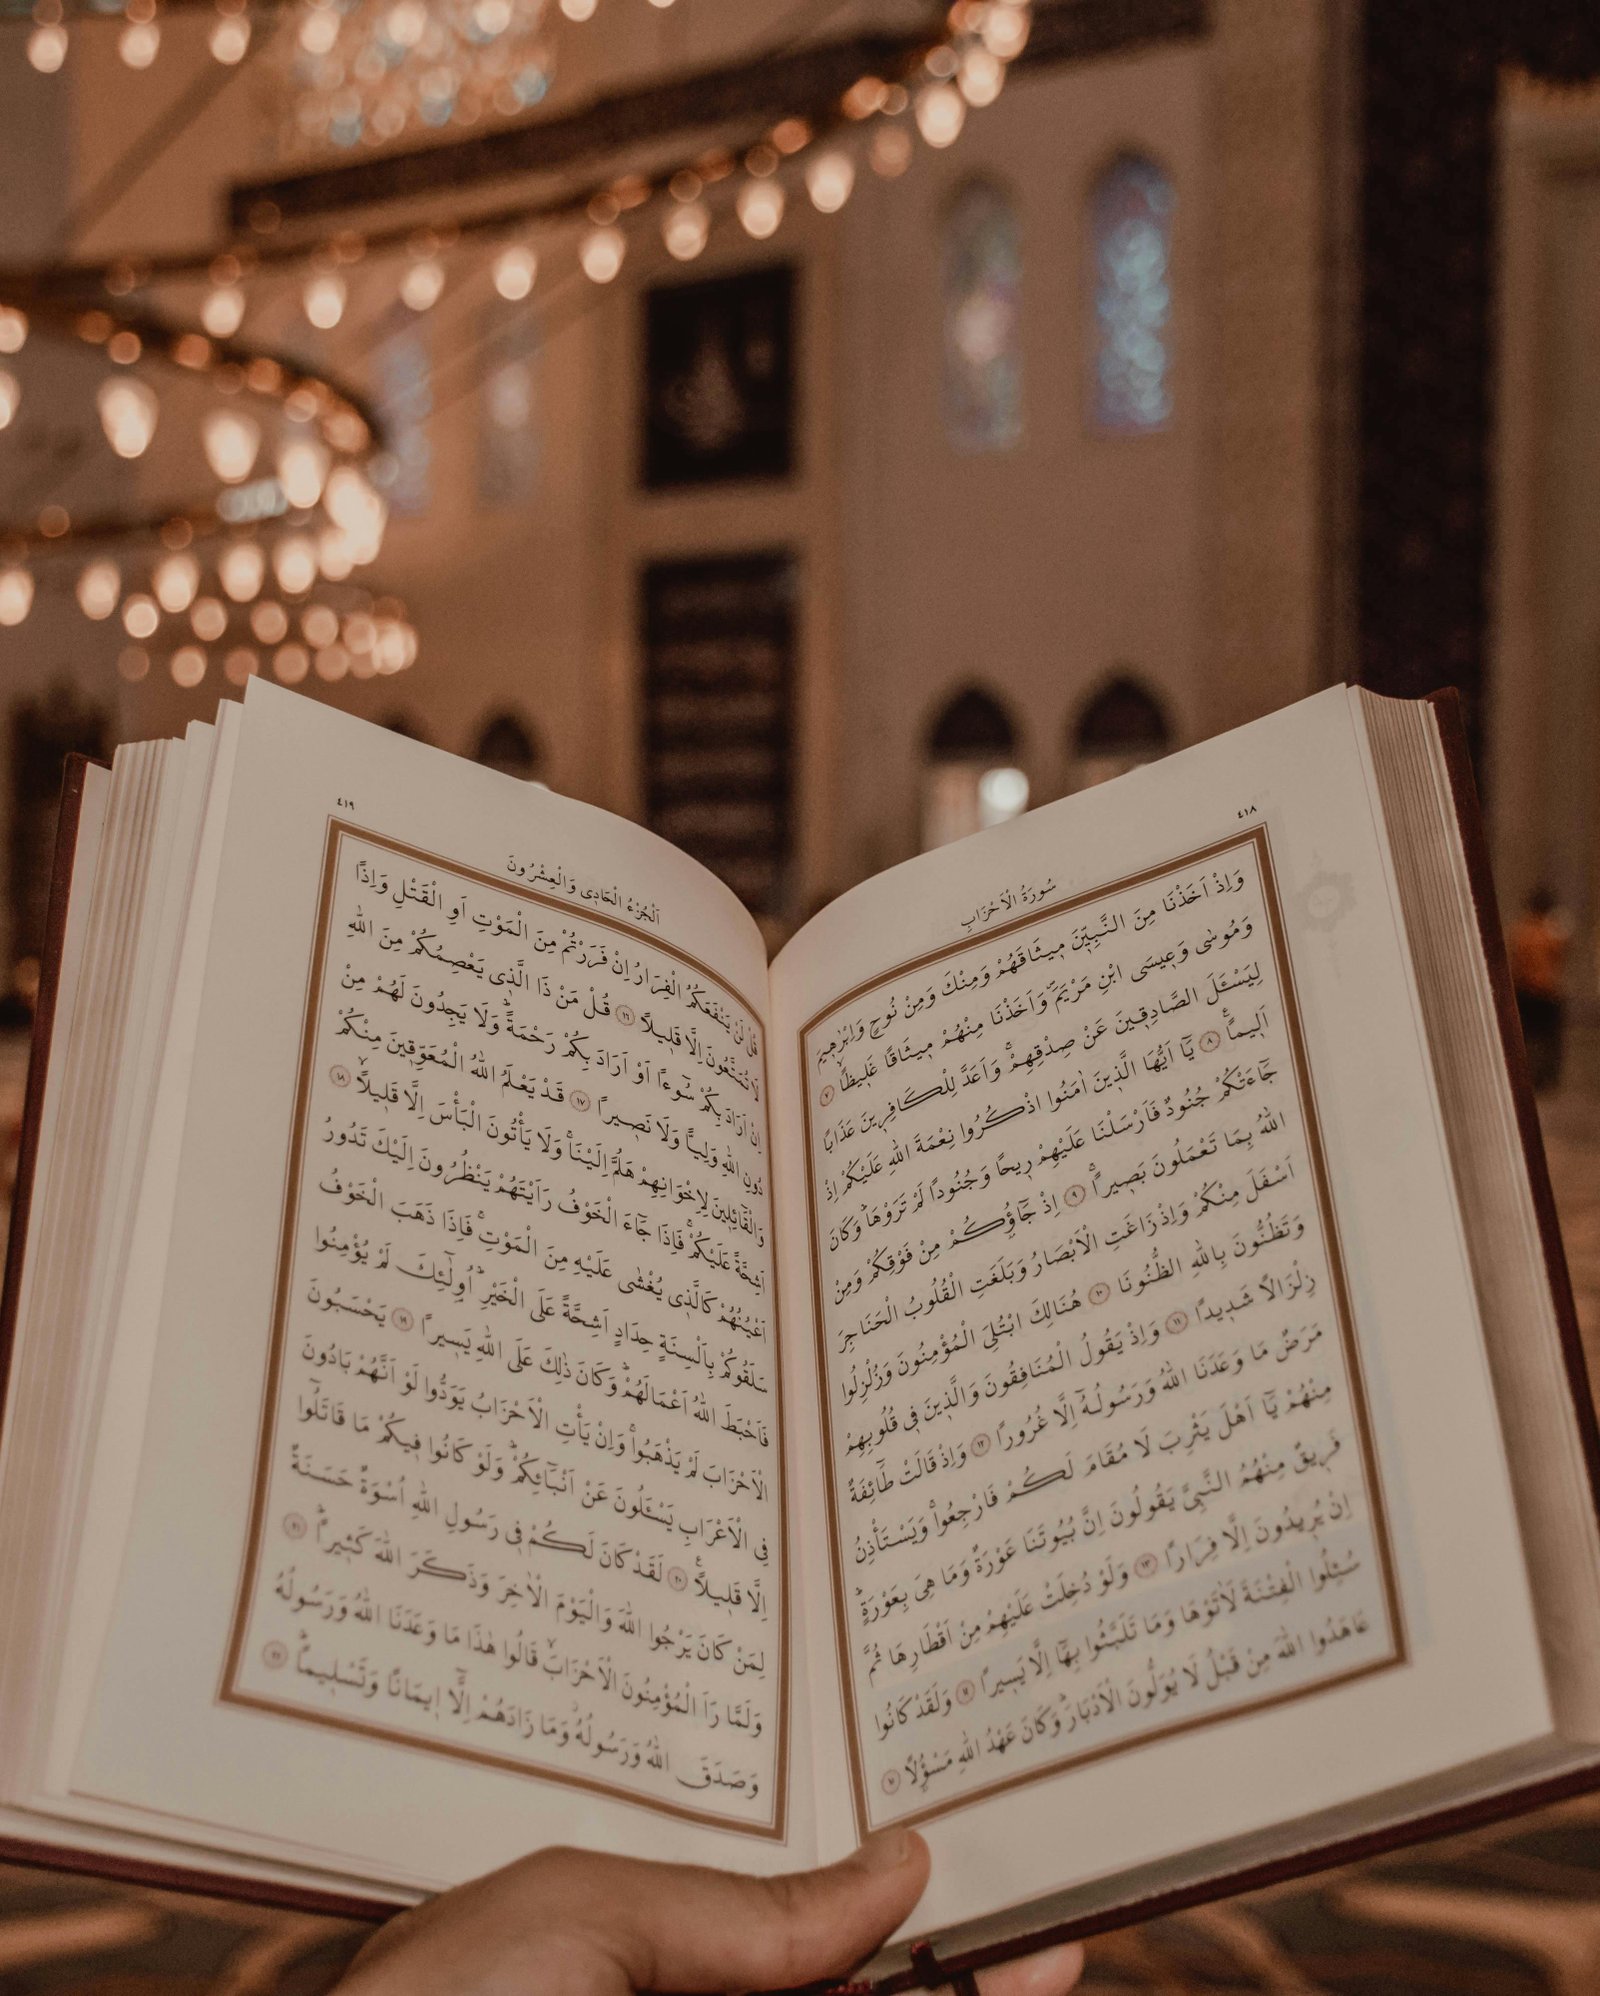 ٤١٨
سُورَةُ الْاَحْزَابِ
وَاِذْ اَخَذْنَا مِنَ النَّبِيّٖنَ مٖيثَاقَهُمْ وَمِنْكَ وَمِنْ نُوحٍ وَاِبْرٰهٖيمَ
وَمُوسٰى وَعٖيسَى ابْنِ مَرْيَمَۖ وَاَخَذْنَا مِنْهُمْ مٖيثَاقًا غَلٖيظًاۙ ﴿٧﴾
لِيَسْئَلَ الصَّادِقٖينَ عَنْ صِدْقِهِمْۚ وَاَعَدَّ لِلْكَافِرٖينَ عَذَابًا
اَلٖيمًاࣖ ﴿٨﴾ يَٓا اَيُّهَا الَّذٖينَ اٰمَنُوا اذْكُرُوا نِعْمَةَ اللّٰهِ عَلَيْكُمْ اِذْ
جَٓاءَتْكُمْ جُنُودٌ فَاَرْسَلْنَا عَلَيْهِمْ رٖيحًا وَجُنُودًا لَمْ تَرَوْهَاؕ وَكَانَ
اللّٰهُ بِمَا تَعْمَلُونَ بَصٖيرًاۚ ﴿٩﴾ اِذْ جَٓاؤُ۫كُمْ مِنْ فَوْقِكُمْ وَمِنْ
اَسْفَلَ مِنْكُمْ وَاِذْ زَاغَتِ الْاَبْصَارُ وَبَلَغَتِ الْقُلُوبُ الْحَنَاجِرَ
وَتَظُنُّونَ بِاللّٰهِ الظُّنُونَا ﴿١٠﴾ هُنَالِكَ ابْتُلِيَ الْمُؤْمِنُونَ وَزُلْزِلُوا
زِلْزَالًا شَدٖيدًا ﴿١١﴾ وَاِذْ يَقُولُ الْمُنَافِقُونَ وَالَّذٖينَ فٖي قُلُوبِهِمْ
مَرَضٌ مَا وَعَدَنَا اللّٰهُ وَرَسُولُهُٓ اِلَّا غُرُورًا ﴿١٢﴾ وَاِذْ قَالَتْ طَٓائِفَةٌ
مِنْهُمْ يَٓا اَهْلَ يَثْرِبَ لَا مُقَامَ لَكُمْ فَارْجِعُواۚ وَيَسْتَأْذِنُ
فَرٖيقٌ مِنْهُمُ النَّبِيَّ يَقُولُونَ اِنَّ بُيُوتَنَا عَوْرَةٌ وَمَا هِيَ بِعَوْرَةٍۚ
اِنْ يُرٖيدُونَ اِلَّا فِرَارًا ﴿١٣﴾ وَلَوْ دُخِلَتْ عَلَيْهِمْ مِنْ اَقْطَارِهَا ثُمَّ
سُئِلُوا الْفِتْنَةَ لَاٰتَوْهَا وَمَا تَلَبَّثُوا بِهَٓا اِلَّا يَسٖيرًا ﴿١٤﴾ وَلَقَدْ كَانُوا
عَاهَدُوا اللّٰهَ مِنْ قَبْلُ لَا يُوَلُّونَ الْاَدْبَارَؕ وَكَانَ عَهْدُ اللّٰهِ مَسْؤُ۫لًا ﴿١٥﴾
٤١٩
اَلْجُزْءُ الْحَادٖي وَالْعِشْرُونَ
قُلْ لَنْ يَنْفَعَكُمُ الْفِرَارُ اِنْ فَرَرْتُمْ مِنَ الْمَوْتِ اَوِ الْقَتْلِ وَاِذًا
لَا تُمَتَّعُونَ اِلَّا قَلٖيلًا ﴿١٦﴾ قُلْ مَنْ ذَا الَّذٖي يَعْصِمُكُمْ مِنَ اللّٰهِ
اِنْ اَرَادَ بِكُمْ سُٓوءًا اَوْ اَرَادَ بِكُمْ رَحْمَةًؕ وَلَا يَجِدُونَ لَهُمْ مِنْ
دُونِ اللّٰهِ وَلِيًّا وَلَا نَصٖيرًا ﴿١٧﴾ قَدْ يَعْلَمُ اللّٰهُ الْمُعَوِّقٖينَ مِنْكُمْ
وَالْقَٓائِلٖينَ لِاِخْوَانِهِمْ هَلُمَّ اِلَيْنَاۚ وَلَا يَأْتُونَ الْبَأْسَ اِلَّا قَلٖيلًاۙ ﴿١٨﴾
اَشِحَّةً عَلَيْكُمْۚ فَاِذَا جَٓاءَ الْخَوْفُ رَاَيْتَهُمْ يَنْظُرُونَ اِلَيْكَ تَدُورُ
اَعْيُنُهُمْ كَالَّذٖي يُغْشٰى عَلَيْهِ مِنَ الْمَوْتِۚ فَاِذَا ذَهَبَ الْخَوْفُ
سَلَقُوكُمْ بِاَلْسِنَةٍ حِدَادٍ اَشِحَّةً عَلَى الْخَيْرِؕ اُو۬لٰٓئِكَ لَمْ يُؤْمِنُوا
فَاَحْبَطَ اللّٰهُ اَعْمَالَهُمْؕ وَكَانَ ذٰلِكَ عَلَى اللّٰهِ يَسٖيرًا ﴿١٩﴾ يَحْسَبُونَ
الْاَحْزَابَ لَمْ يَذْهَبُواۚ وَاِنْ يَأْتِ الْاَحْزَابُ يَوَدُّوا لَوْ اَنَّهُمْ بَادُونَ
فِي الْاَعْرَابِ يَسْئَلُونَ عَنْ اَنْبَٓائِكُمْؕ وَلَوْ كَانُوا فٖيكُمْ مَا قَاتَلُٓوا
اِلَّا قَلٖيلًاࣖ ﴿٢٠﴾ لَقَدْ كَانَ لَكُمْ فٖي رَسُولِ اللّٰهِ اُسْوَةٌ حَسَنَةٌ
لِمَنْ كَانَ يَرْجُوا اللّٰهَ وَالْيَوْمَ الْاٰخِرَ وَذَكَرَ اللّٰهَ كَثٖيرًاؕ ﴿٢١﴾
وَلَمَّا رَاَ الْمُؤْمِنُونَ الْاَحْزَابَۙ قَالُوا هٰذَا مَا وَعَدَنَا اللّٰهُ وَرَسُولُهُ
وَصَدَقَ اللّٰهُ وَرَسُولُهُؗ وَمَا زَادَهُمْ اِلَّٓا اٖيمَانًا وَتَسْلٖيمًاؕ ﴿٢٢﴾